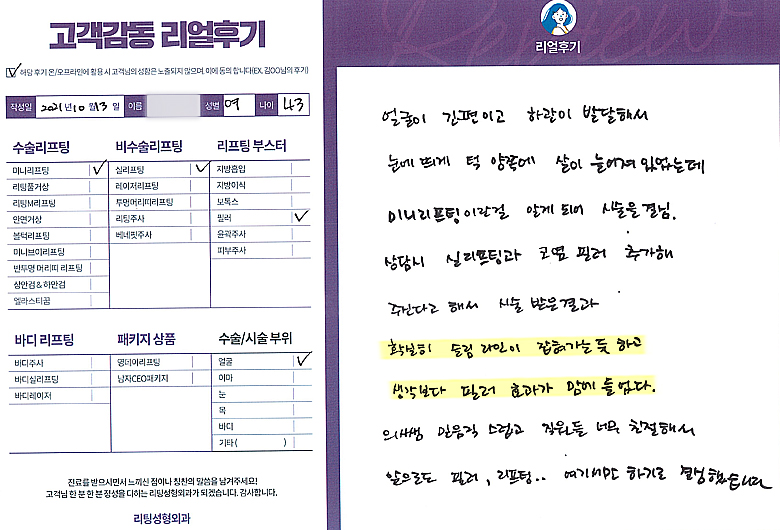 고객감동 리얼후기
해당 후기 온/오프라인에 활용 시 고객님의 성함은 노출되지 않으며, 이에 동의 합니다(EX. 김OO님의 후기)
작성일 2021년 10월 13일 이름 성별 여 나이 43
수술리프팅 비수술리프팅 리프팅 부스터
미니리프팅 ✓ 실리프팅 ✓ 지방흡입
리팅풀거상 레이저리프팅 지방이식
리팅M리프팅 투명머리띠리프팅 보톡스
안면거상 리팅주사 필러 ✓
볼턱리프팅 베네핏주사 윤곽주사
미니브이리프팅 피부주사
반투명 머리띠 리프팅
상안검 & 하안검
엘라스티꿈
바디 리프팅 패키지 상품 수술/시술 부위
바디주사 명데이리프팅 얼굴 ✓
바디실리프팅 남자CEO패키지 이마
바디레이저 눈
목
바디
기타( )
진료를 받으시면서 느끼신 점이나 칭찬의 말씀을 남겨주세요!
고객님 한 분 한 분 정성을 다하는 리팅성형외과가 되겠습니다. 감사합니다.
리팅성형외과
Review
리얼후기
얼굴이 긴편이고 하관이 발달해서
눈에 띄게 턱 양쪽에 살이 늘어져 있었는데
미니리프팅이란걸 알게 되어 시술을 결심.
상담시 실리프팅과 코옆 필러 추가해
주신다고 해서 시술 받은결과
확실히 슬림 라인이 잡혀가는 듯 하고
생각보다 필러 효과가 맘에 들었다.
의사쌤 믿음직 스럽고 직원들 너무 친절해서
앞으로도 필러, 리프팅.. 여기서만 하기로 결정했습니다